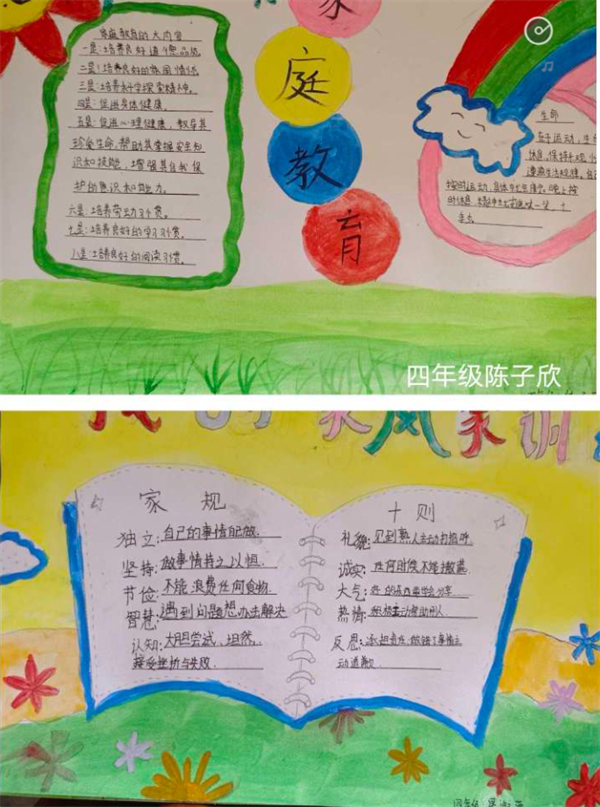 家
庭
教
育
家庭教育的大内容
一是:培养良好道德品质
二是:培养良好的家国情怀
三是:培养科学探索精神。
四是:促进身体健康。
五是:促进心理健康,教导其
珍爱生命,帮助其掌握安全知
识和技能,增强其自我保
护的意识和能力。
六是:培养劳动习惯。
七是:培养良好的学习习惯。
八是:培养良好的阅读习惯。
生命
在于运动,
休息,保持乐观,
遵循生活规律,
四年级陈子欣
我的家风家训
家规
十则
独立:自己的事情自己做.
坚持:做事情持之以恒.
节俭:不能浪费任何食物.
智慧:遇到问题想办法解决
认知:大胆尝试、坦然
接受挫折与失败.
礼貌:见到熟人主动打招呼.
诚实:任何时候不能撒谎.
大气:好的东西要学会分享
热情:积极主动帮助别人
反思:承担责任.做错了事情主
动道歉
四年级